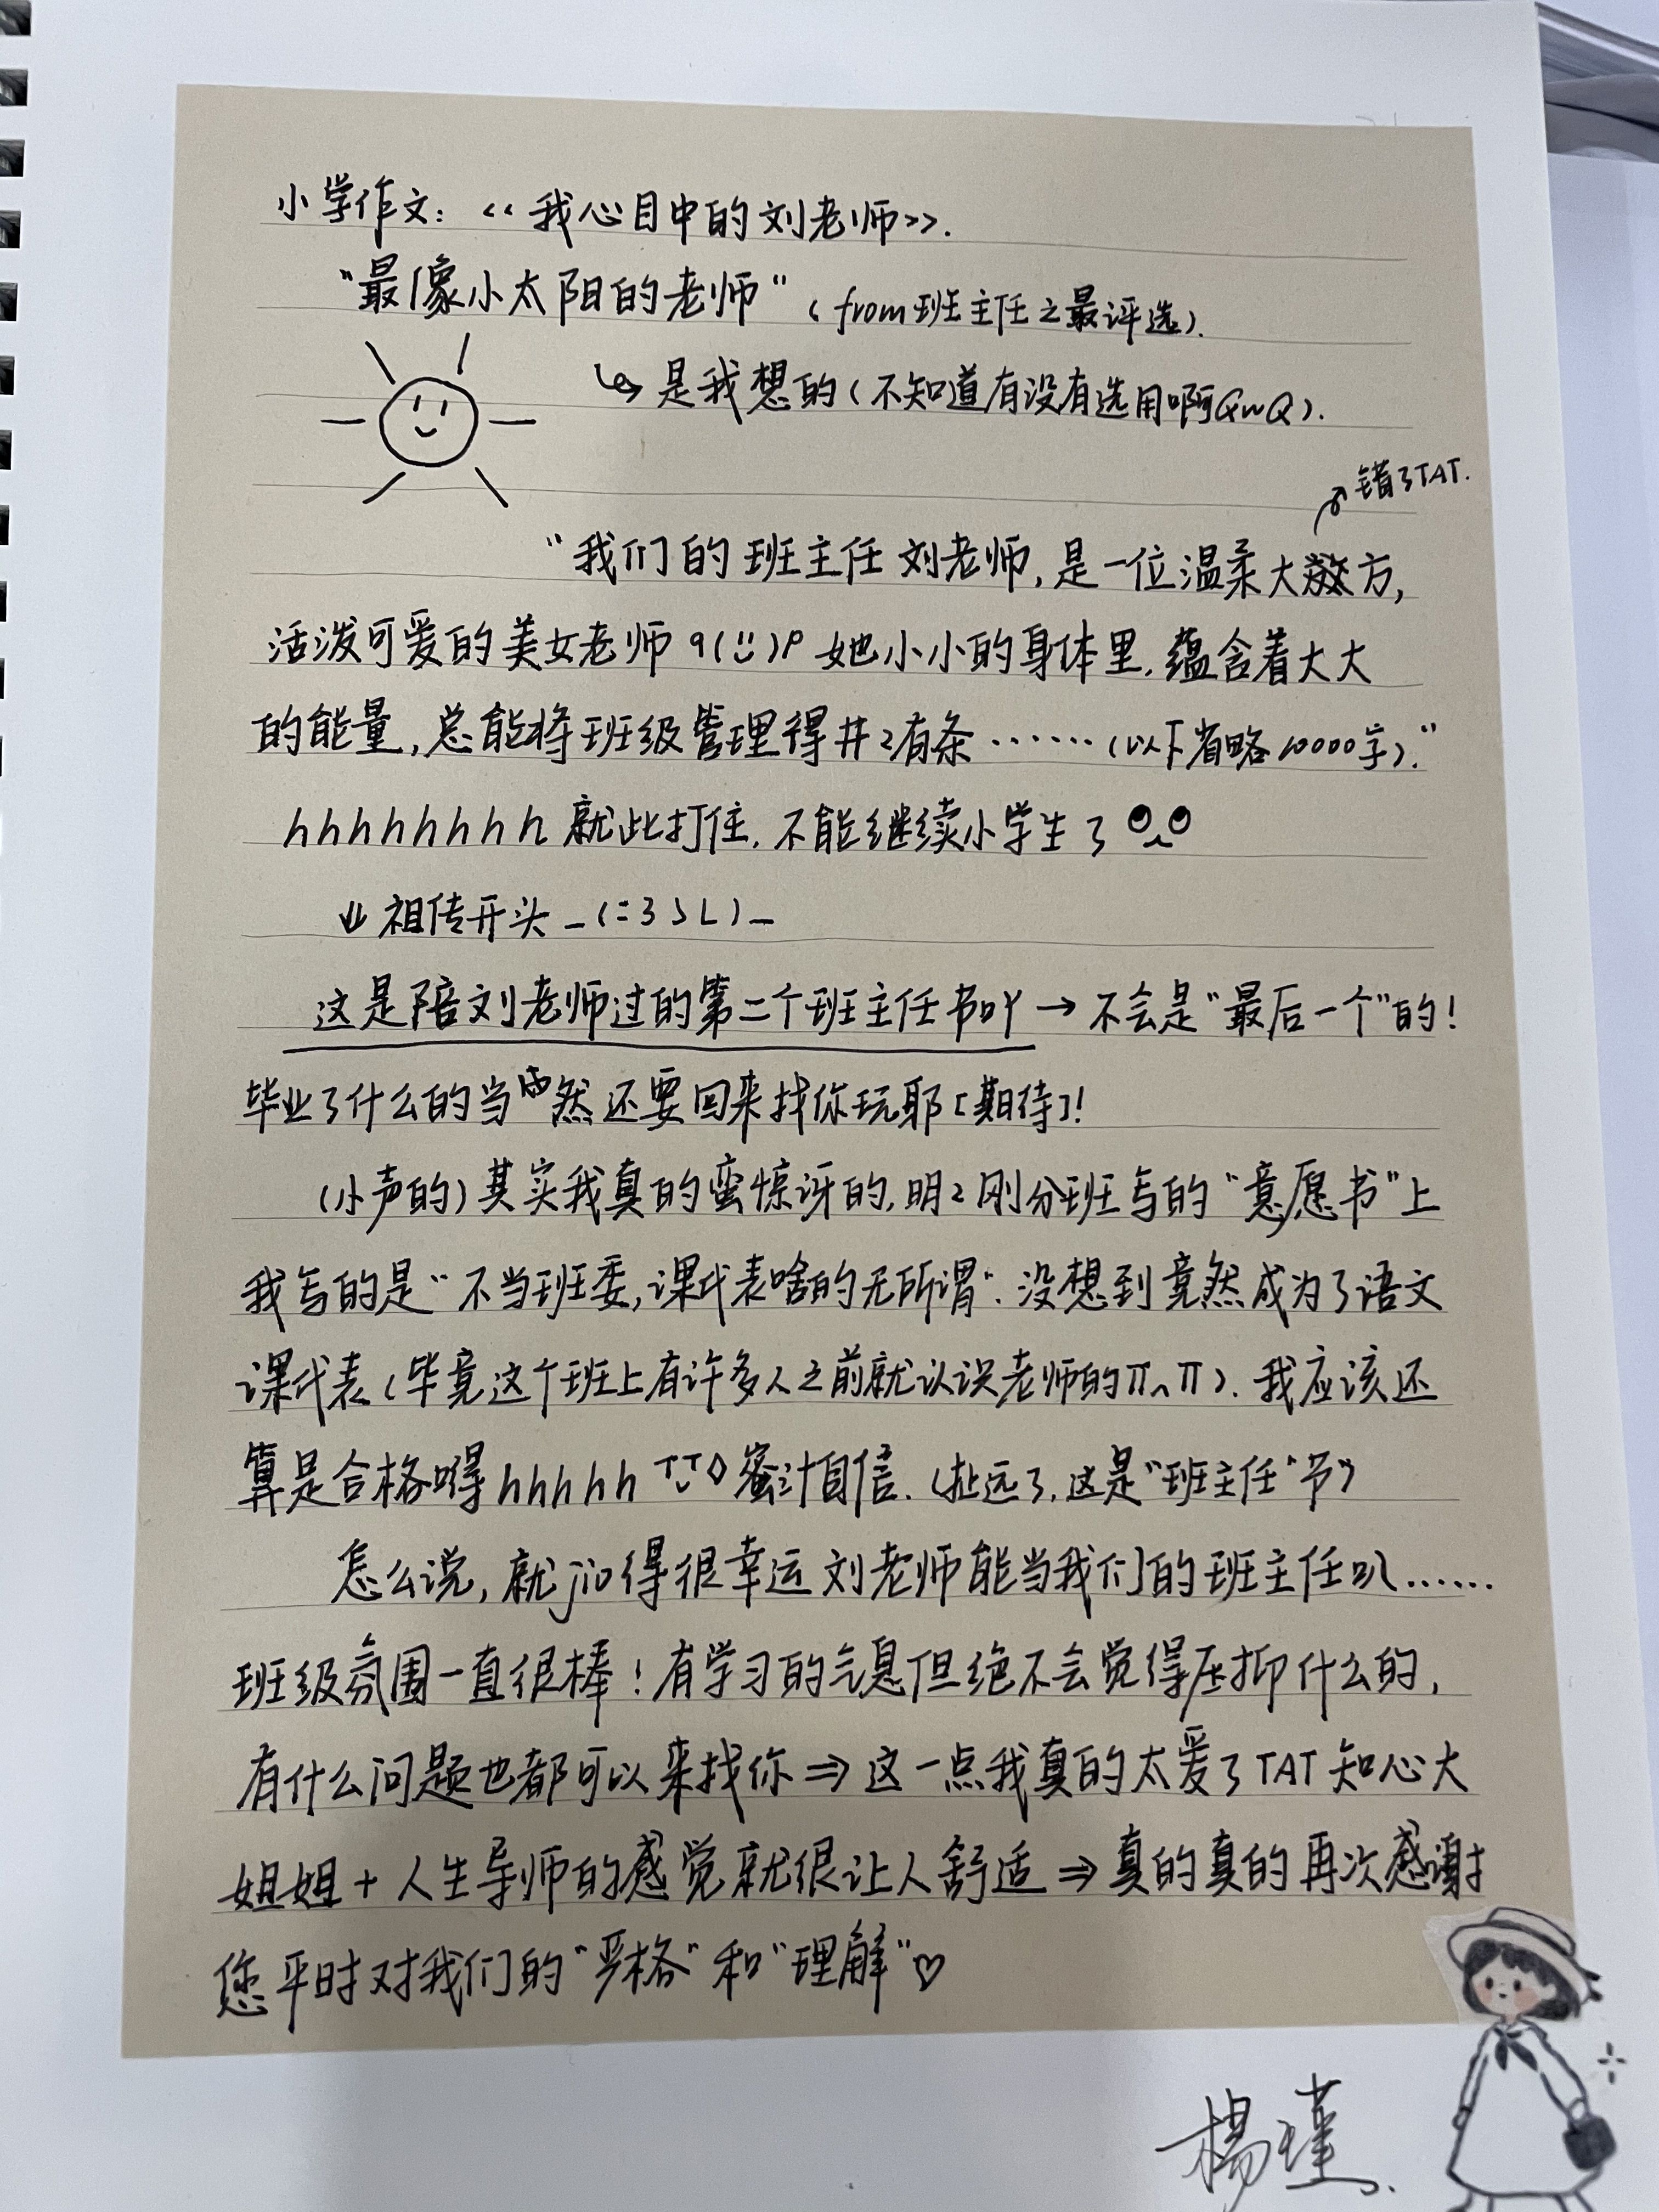 小学作文：<<我心目中的刘老师>>.
“最像小太阳的老师”（from班主任之最评选).
↳是我想的（不知道有没有选用啊QwQ).
错了TAT.
“我们的班主任刘老师,是一位温柔大方,
活泼可爱的美女老师 q(ü)p 她小小的身体里,蕴含着大大
的能量,总能将班级管理得井々有条……（以下省略10000字).”
hhhhhhhh 就此打住,不能继续小学生了
↓祖传开头_(:3」∠)_
这是陪刘老师过的第二个班主任节吖→不会是“最后一个”的!
毕业了什么的当然还要回来找你玩耶[期待]!
(小声的)其实我真的蛮惊讶的,明々刚分班写的“意愿书”上
我写的是“不当班委,课代表啥的无所谓”.没想到竟然成为了语文
课代表(毕竟这个班上有许多人之前就认识老师的π^π).我应该还
算是合格嘚hhhhh 蜜汁自信.(扯远了,这是“班主任”节)
怎么说,就jio得很幸运刘老师能当我们的班主任叭……
班级氛围一直很棒!有学习的气息但绝不会觉得压抑什么的,
有什么问题也都可以来找你⇒这一点我真的太爱了TAT知心大
姐姐+人生导师的感觉就很让人舒适⇒真的真的再次感谢
您平时对我们的“严格”和“理解”♡
杨瑾.